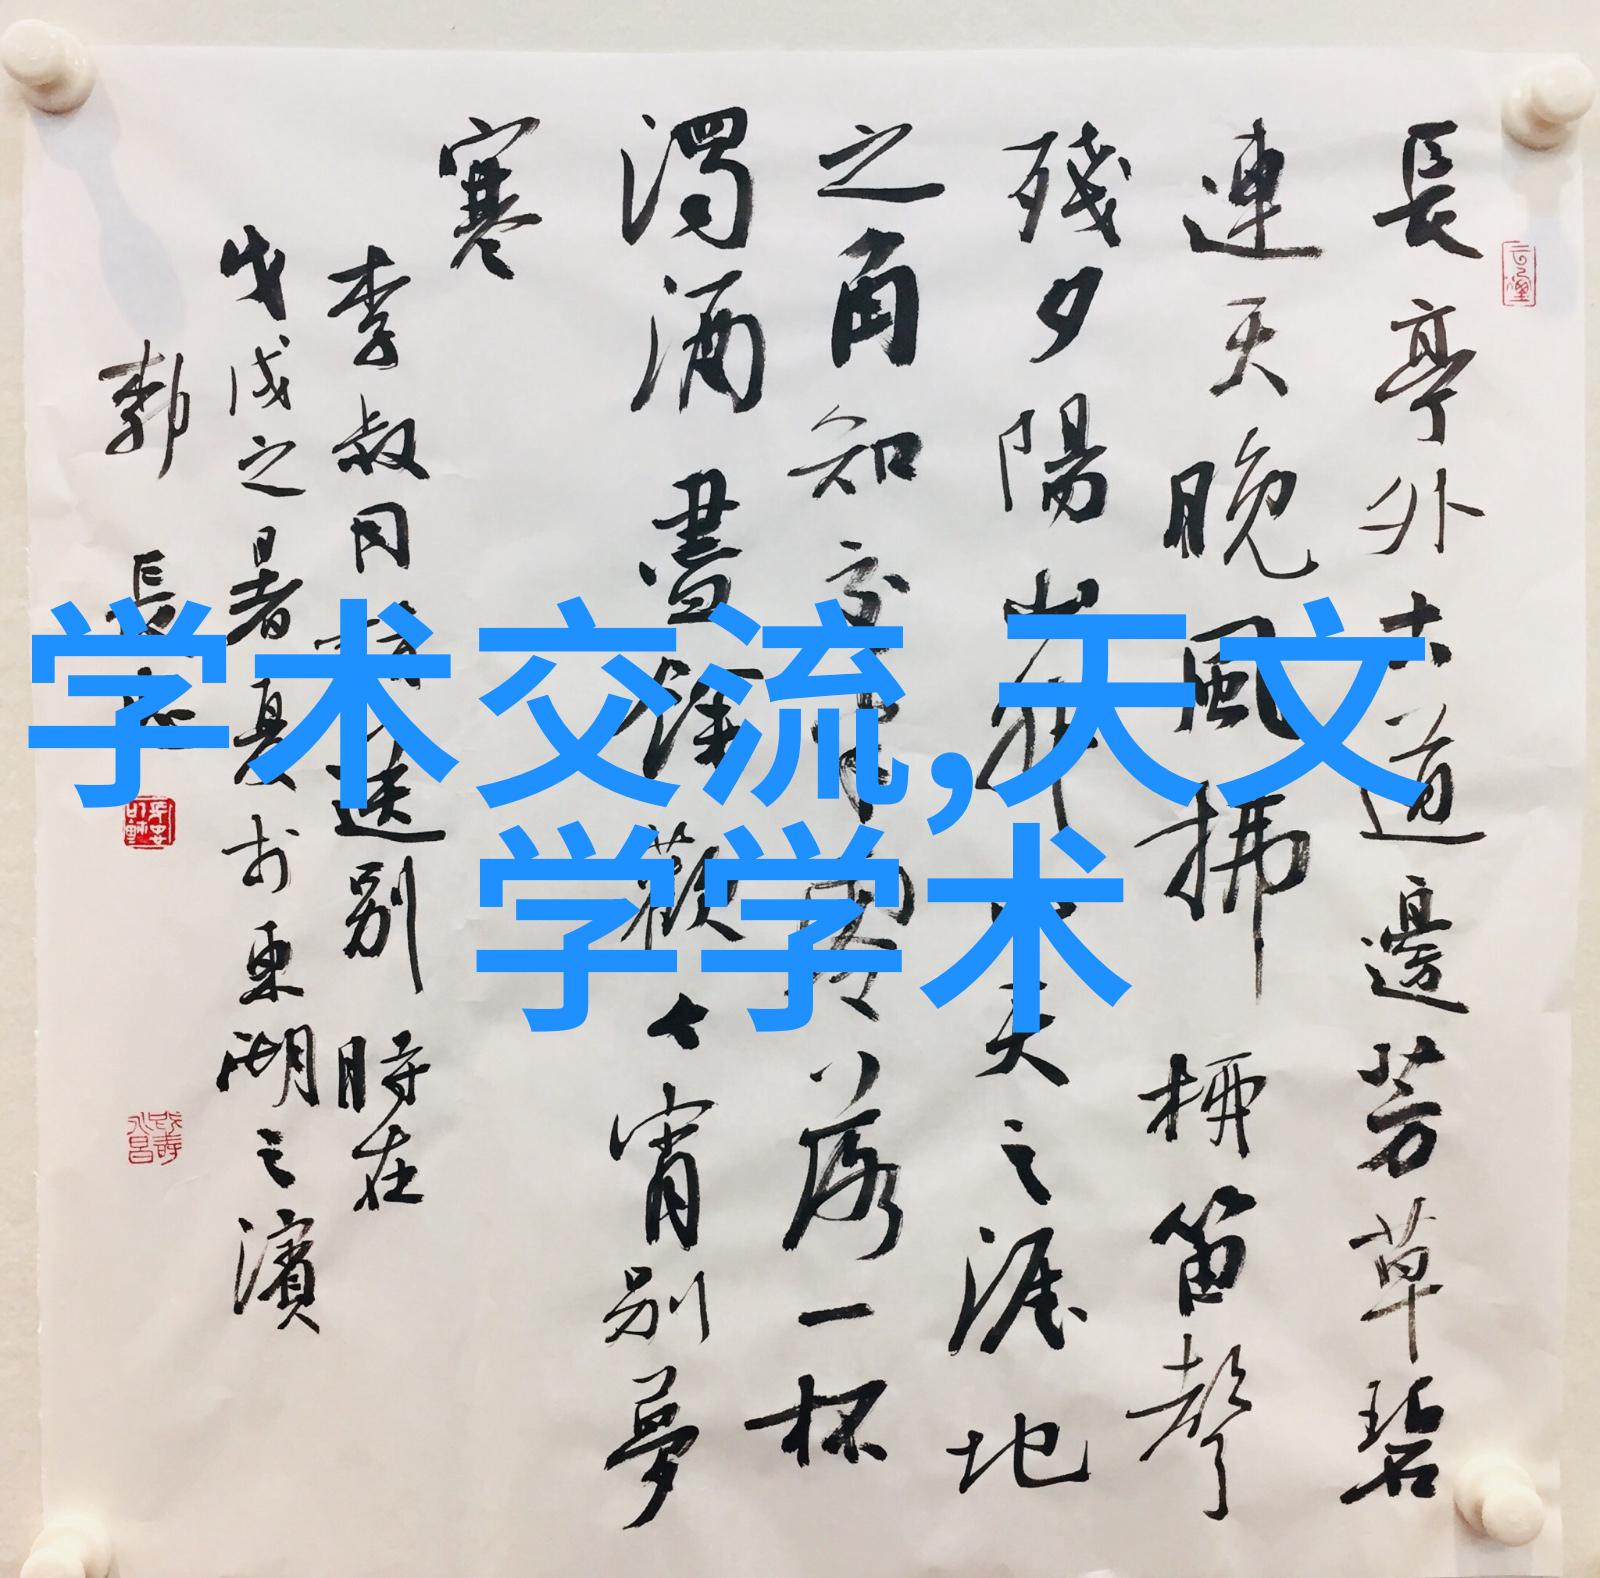 長亭外古道邊芳草碧
連天晚風拂柳笛聲
殘夕陽山外山天之涯地
之角知交半零落一杯
濁酒盡餘歡今宵别夢
寒
李叔同 送别 時在
戊戌之暑夏於東湖之濱
長
学术交流,天文
学学术